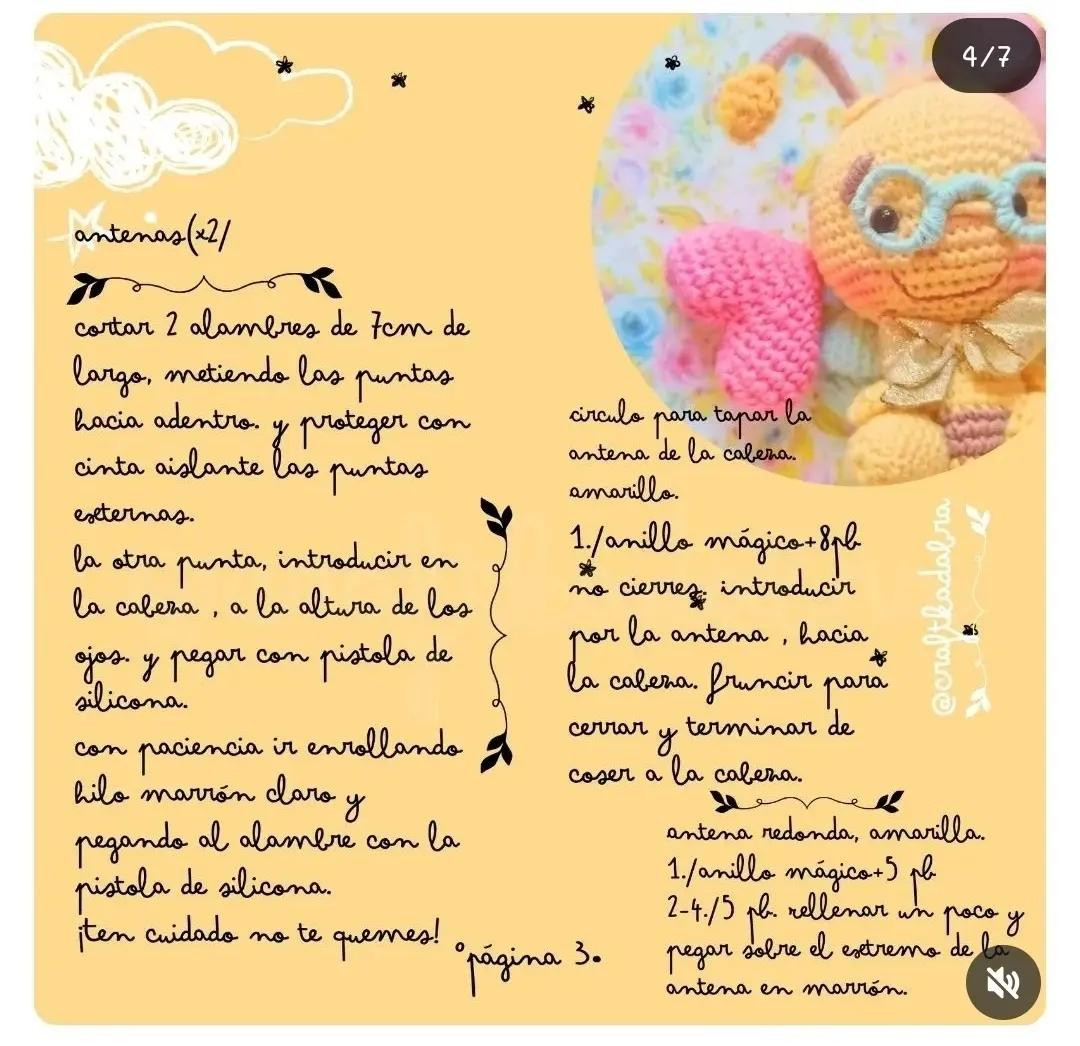 4/7
antenas(x2/
cortar 2 alambres de 7cm de
largo, metiendo las puntas
hacia adentro. y proteger con
cinta aislante las puntas
externas.
la otra punta, introducir en
la cabeza , a la altura de los
ojos. y pegar con pistola de
silicona.
con paciencia ir enrollando
hilo marrón claro y
pegando al alambre con la
pistola de silicona.
¡ten cuidado no te quemes!
°página 3.
circulo para tapar la
antena de la cabeza.
amarillo.
1./anillo mágico+8pb
no cierres. introducir
por la antena , hacia
la cabeza. fruncir para
cerrar y terminar de
coser a la cabeza.
@craftkadabra
antena redonda, amarilla.
1./anillo mágico+5 pb
2-4./5 pb. rellenar un poco y
pegar sobre el extremo de la
antena en marrón.